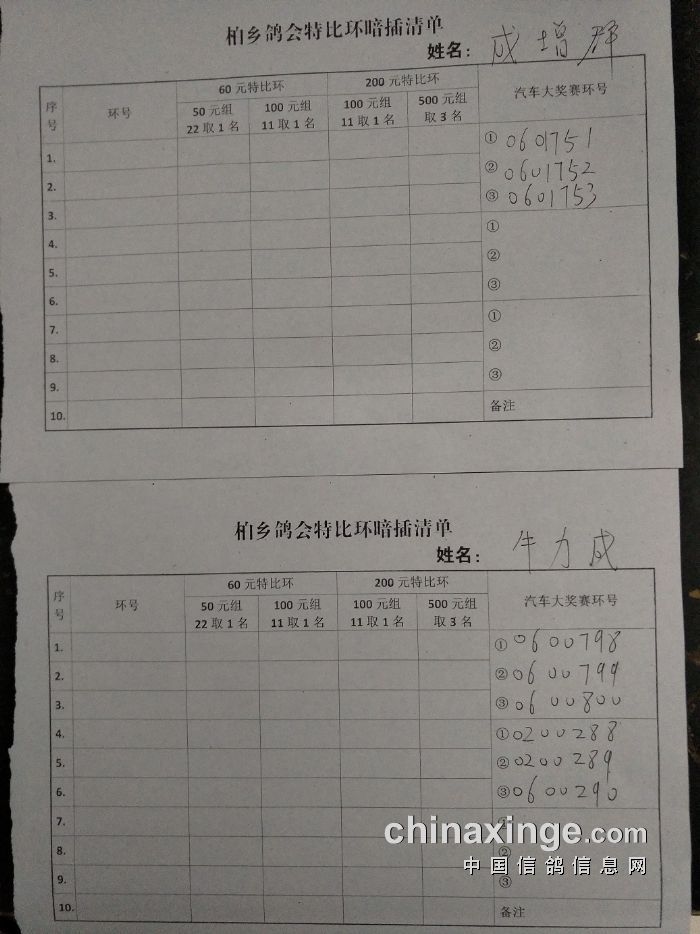 柏乡鸽会特比环暗插清单
姓名： 成增群
序号 环号 60 元特比环 200 元特比环 汽车大奖赛环号
50 元组 22 取 1 名 100 元组 11 取 1 名 100 元组 11 取 1 名 500 元组 取 3 名
1. ① 0601751
2. ② 0601752
3. ③ 0601753
4. ①
5. ②
6. ③
7. ①
8. ②
9. ③
10. 备注
柏乡鸽会特比环暗插清单
姓名： 牛力成
序号 环号 60 元特比环 200 元特比环 汽车大奖赛环号
50 元组 22 取 1 名 100 元组 11 取 1 名 100 元组 11 取 1 名 500 元组 取 3 名
1. ① 0600798
2. ② 0600799
3. ③ 0600800
4. ① 0200288
5. ② 0200289
6. ③ 0600290
7. ①
8. ②
9. ③
10. 备注
chinaxinge.com
中国信鸽信息网